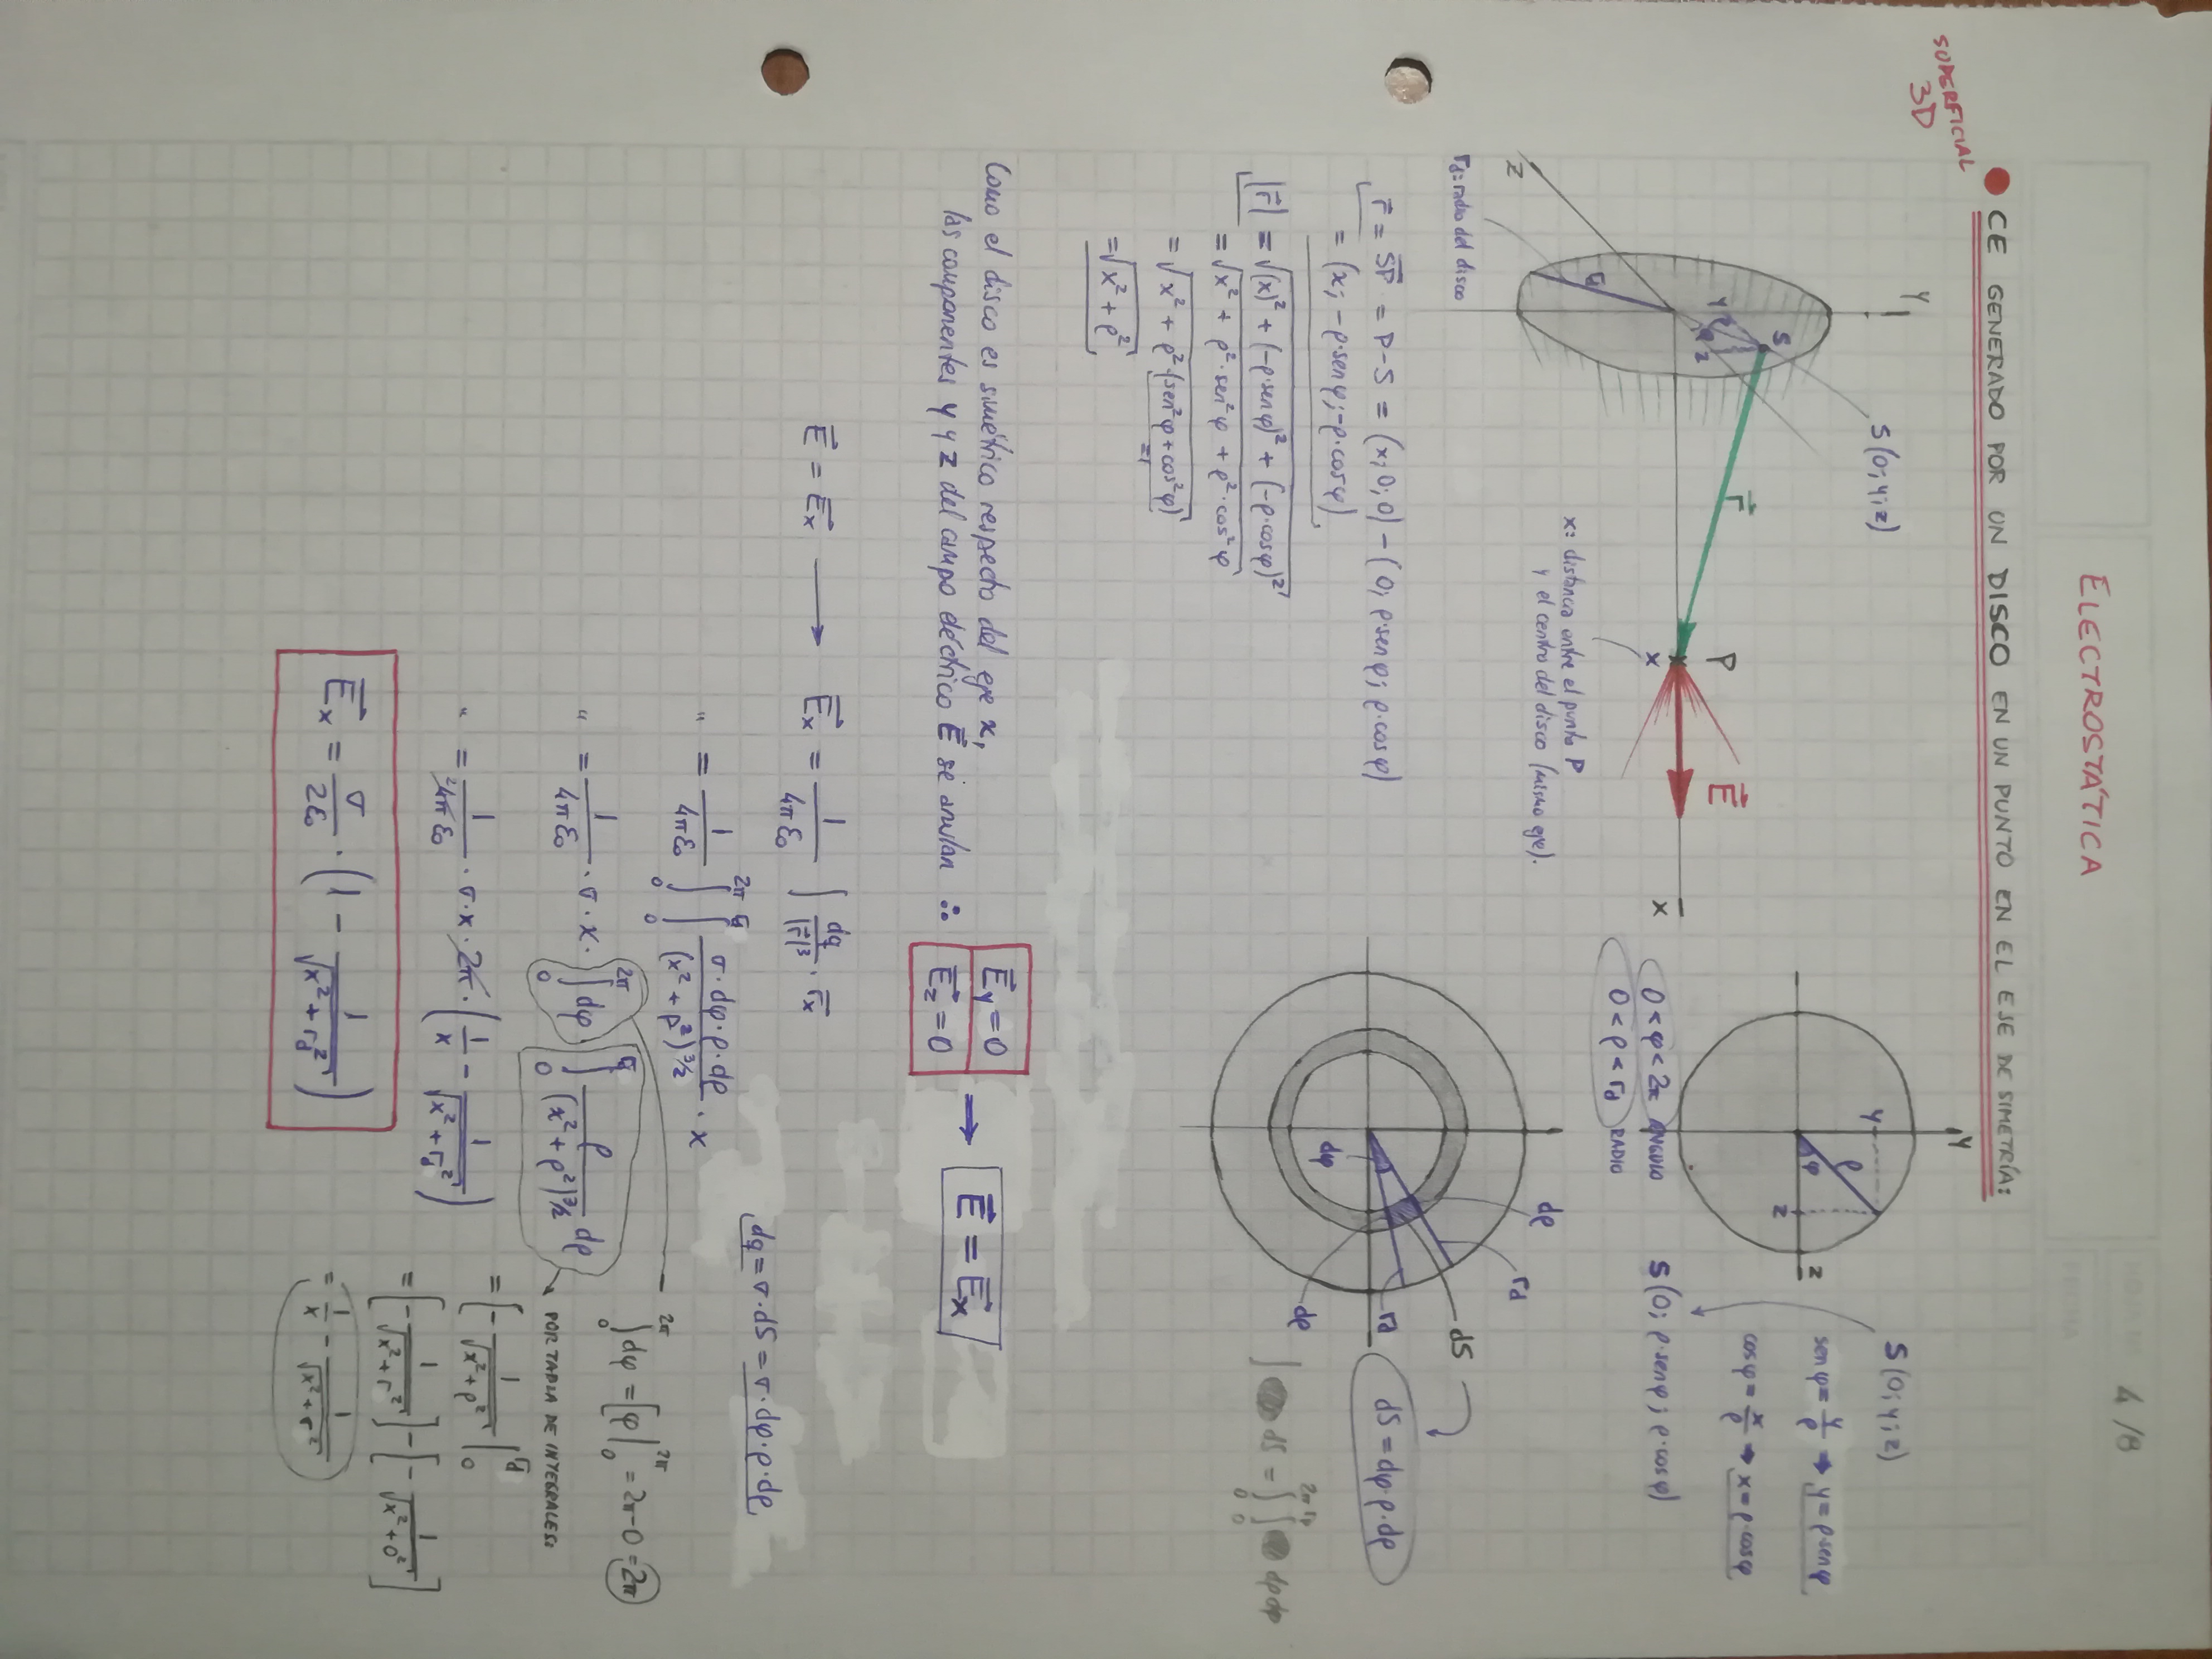 HOJA Nº 4/8
FECHA
ELECTROSTÁTICA
CE GENERADO POR UN DISCO EN UN PUNTO EN EL EJE DE SIMETRÍA:
SUPERFICIAL
3D
Y
S(0; y; z)
S
y ρ φ z
r⃗
P
E⃗
x
x
z
rd
x: distancia entre el punto P
y el centro del disco (mismo eje).
rd: radio del disco
Y
y
ρ
φ
z
z
0 < φ < 2π ÁNGULO
0 < ρ < rd RADIO
S(0; y; z)
sen φ = y/ρ ➔ y = ρ·sen φ
cos φ = x/ρ ➔ x = ρ·cos φ
S(0; ρ·sen φ; ρ·cos φ)
dρ
rd
dS
rd
dφ
dρ
dS = dφ·ρ·dρ
∫ dS = ∫₀^2π ∫₀^rd dρ dφ
r⃗ = SP⃗ = P-S = (x; 0; 0) - (0; ρ·sen φ; ρ·cos φ)
= (x; -ρ·sen φ; -ρ·cos φ)
|r⃗| = √((x)² + (-ρ·sen φ)² + (-ρ·cos φ)²)
= √(x² + ρ²·sen²φ + ρ²·cos²φ)
= √(x² + ρ²·(sen²φ + cos²φ))
=1
= √(x² + ρ²)
Como el disco es simétrico respecto del eje x,
las componentes y y z del campo eléctrico E⃗ se anulan ∴
E⃗y = 0
E⃗z = 0
→ E⃗ = E⃗x
E⃗ = E⃗x → E⃗x = 1/(4πε₀) ∫ dq/|r⃗|³ · r⃗x
dq = σ·dS = σ·dφ·ρ·dρ
" = 1/(4πε₀) ∫₀^2π ∫₀^rd σ·dφ·ρ·dρ/(x² + ρ²)^3/2 · x
" = 1/(4πε₀) · σ·x· ∫₀^2π dφ ∫₀^rd ρ/(x² + ρ²)^3/2 dρ
∫₀^2π dφ = [φ|₀^2π = 2π-0 = 2π
POR TABLA DE INTEGRALES:
= [-1/√(x²+ρ²) |₀^rd
= [-1/√(x²+r²)] - [-1/√(x²+0²)]
= 1/x - 1/√(x²+r²)
" = 1/(4πε₀) · σ·x·2π·(1/x - 1/√(x²+rd²))
2
E⃗x = σ/(2ε₀) · (1 - 1/√(x²+rd²))